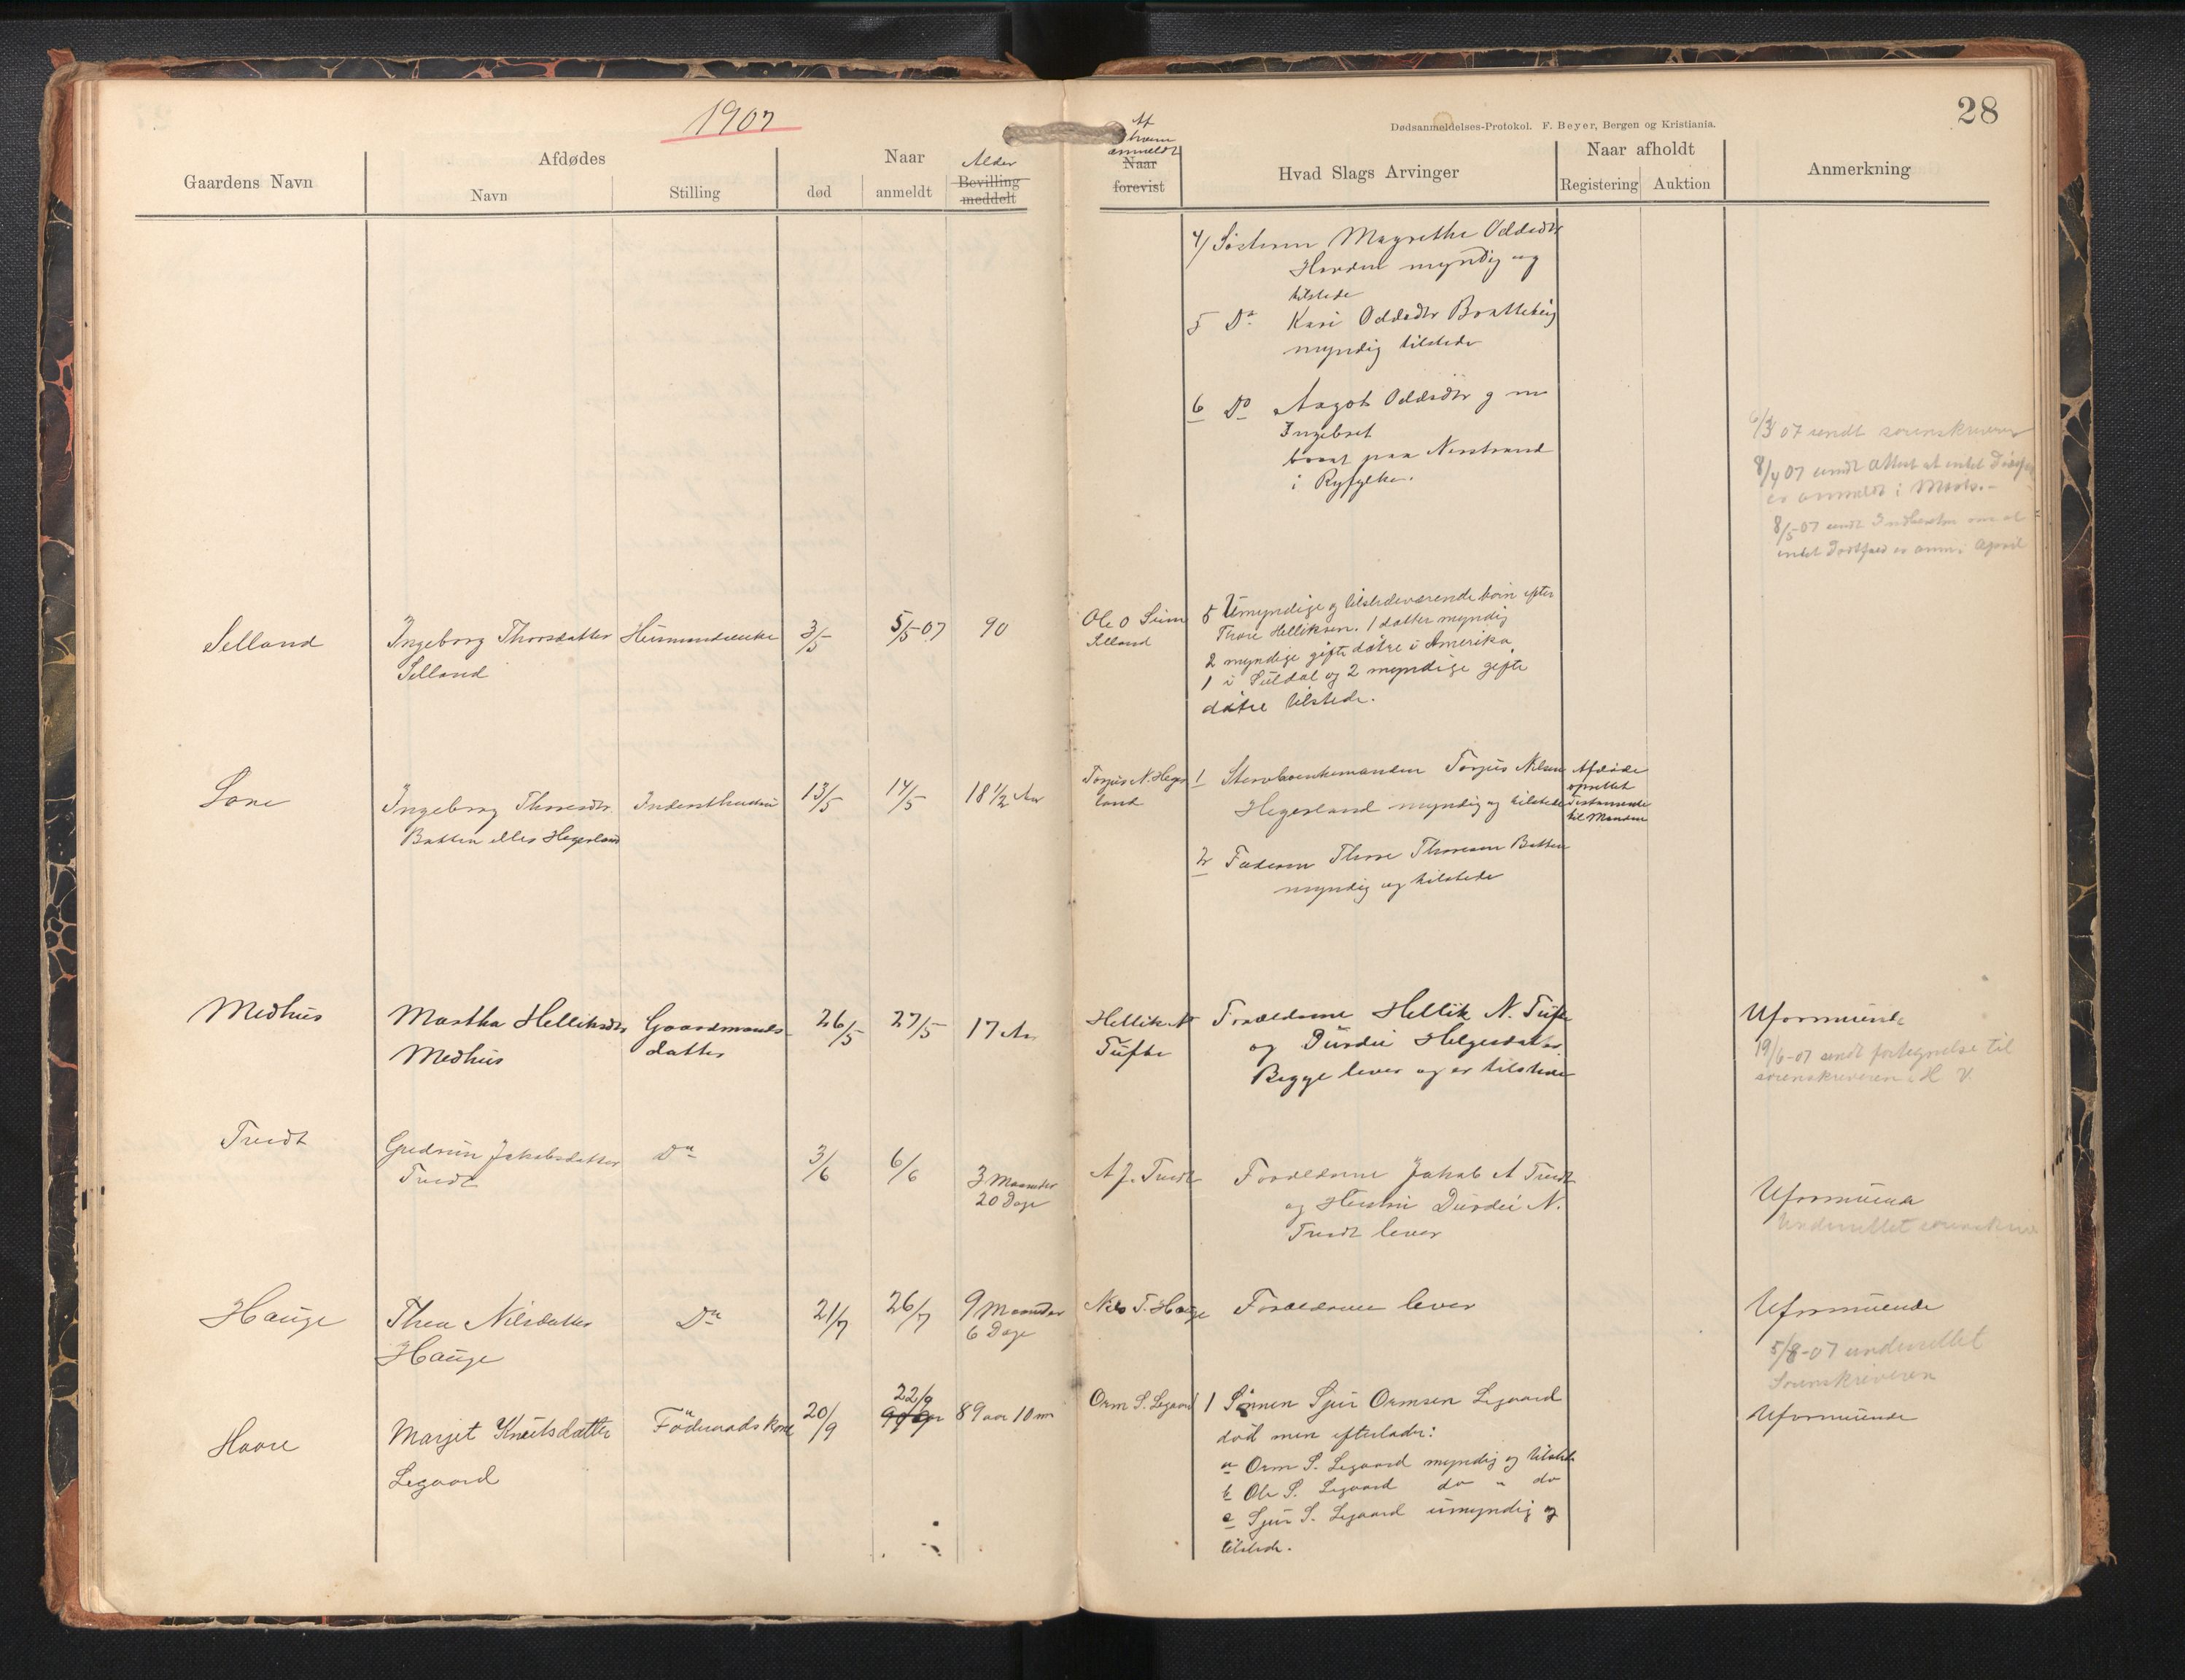 1907
28
Dødsanmeldelses-Protokol. F. Beyer, Bergen og Kristiania.
Gaardens Navn
Afdødes
Navn
Stilling
Naar
død
anmeldt
Alder
Bevilling
meddelt
Af
hvem
anmeldt
Naar
forevist
Hvad Slags Arvinger
Naar afholdt
Registering
Auktion
Anmerkning
4/ Søsteren Magrethe Oddsdtr
myndig og
tilstede
5 Do Kari Oddsdtr Bratteteig
myndig tilstede
6 Do Aagot Oddsdtr g m
Ingebret
bosat paa Nerstrand
i Ryfylke.
6/3 07 sendt sorenskriveren
8/4 07 sendt Attest at intet Dødsfald
er anmeldt i Marts.-
8/5-07 sendt Indberetn om at
intet Dødsfald er anm. i April
Selland
Ingeborg Thorsdatter
Selland
Husmandsenke
3/5
5/5-07
90
Ole O Seim
Selland
5 Umyndige og tilstedeværende børn efter
Thore Helliksen. 1 datter myndig
2 myndige gifte døtre i Amerika,
1 i Suldal og 2 myndige gifte
døtre tilstede.
Lone
Ingeborg Thoresdtr
Batten eller Hegerland
Inderst
13/5
14/5
18 1/2 Aar
Torjus N. Heger
land
1 Torjus Nilsen
Hegerland myndig og tilstede
2 Faderen Thore Thoresen Batten
myndig og tilstede
Afdøde
oprettet
Testamente
til Manden
Medhus
Martha Helliksdtr
Medhus
Gaardmands-
datter
26/5
27/5
17 Aar
Hellik N
Tufte
Forældrene Hellik N. Tufte
og Durdei Helgesdatter
Begge lever og er tilstede
Uformuende
19/6-07 sendt fortegnelse til
sorenskriveren i H V.
Tveidt
Gudrun Jakobsdatter
Tveidt
Do
3/6
6/6
3 Maaneder
20 Dage
A J. Tveidt
Forældrene Jakob A Tveidt
og Hustru Durdei N.
Tveidt lever
Uformuende
Underrettet sorenskriv
Hauge
Thea Nilsdatter
Hauge
Do
21/7
26/7
9 Maaneder
6 Dage
Nils T. Hauge
Forældrene lever
Uformuende
5/8-07 underrettet
Sorenskriveren
Haare
Marjet Knutsdatter
Legaard
Føderaadskone
20/9
22/9
89 aar 10 m
Orm S. Legaard
1 Sønnen Sjur Ormsen Legaard
død men efterlader:
a Orm S. Legaard myndig og tilstede
b Ole S. Legaard do " do
c Sjur S. Legaard umyndig og
tilstede.
Uformuende